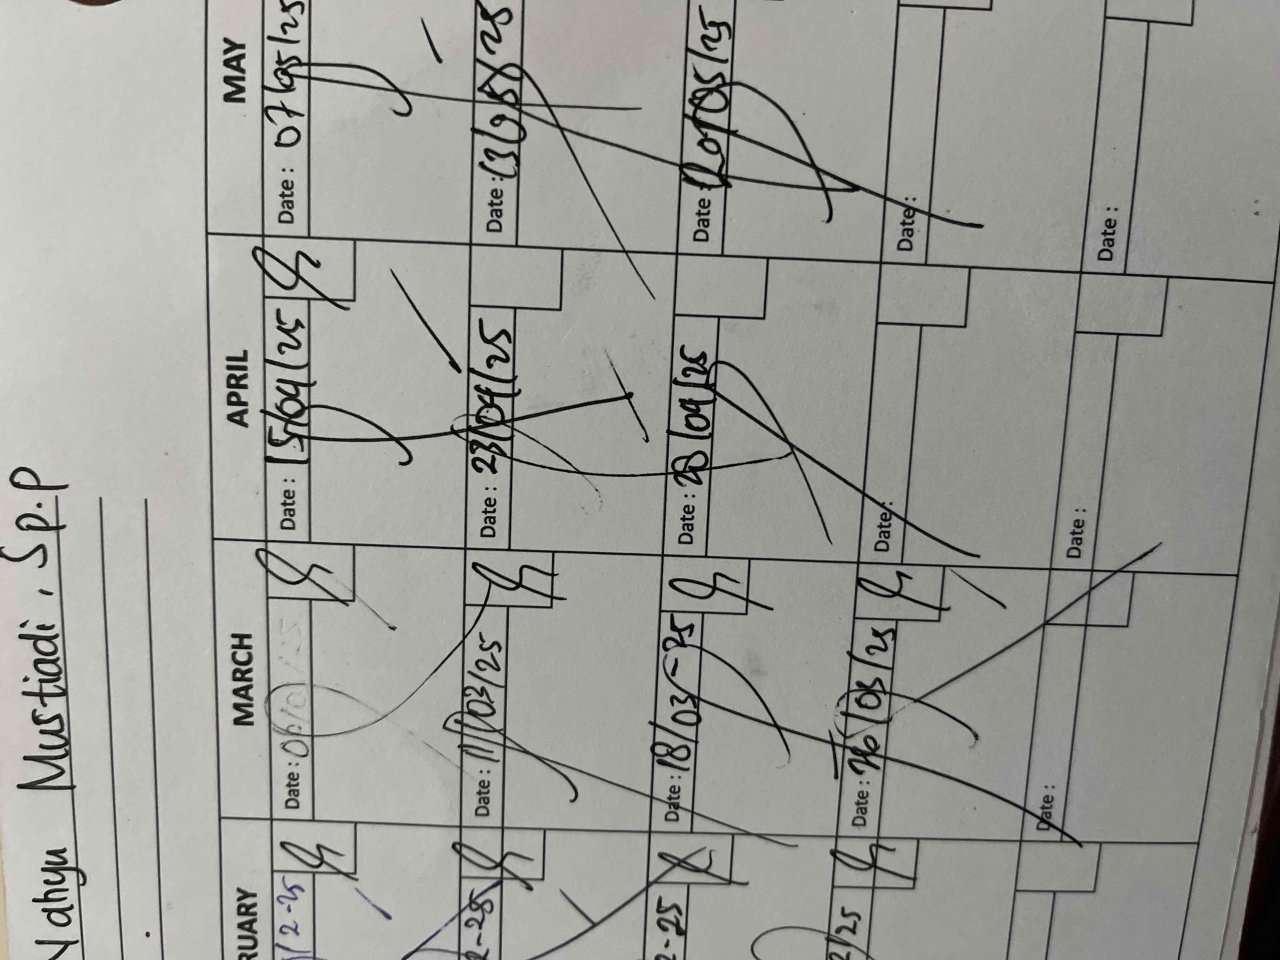 Yahyu Mustiadi, S.P.P
RUARY MARCH APRIL MAY
2-25
Date :
Date : 15/04/25
Date : 07/05/25
2-25
Date : 11/03/25
Date : 23/04/25
Date : 13/05/25
2-25
Date : 18/03-25
Date : 28/04/25
Date : 20/05/25
2/25
Date : 26/03/25
Date :
Date :
Date :
Date :
Date :